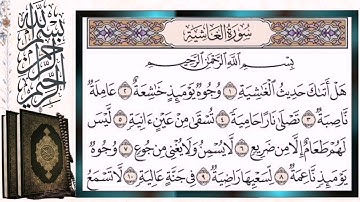 سُورَةُ الغَاشِيَةِ
بِسْمِ اللَّهِ الرَّحْمَٰنِ الرَّحِيمِ
هَلْ أَتَىٰكَ حَدِيثُ الْغَٰشِيَةِ ١ وُجُوهٌ يَوْمَئِذٍ خَٰشِعَةٌ ٢ عَامِلَةٌ
نَّاصِبَةٌ ٣ تَصْلَىٰ نَارًا حَامِيَةً ٤ تُسْقَىٰ مِنْ عَيْنٍ ءَانِيَةٍ ٥ لَّيْسَ
لَهُمْ طَعَامٌ إِلَّا مِن ضَرِيعٍ ٦ لَّا يُسْمِنُ وَلَا يُغْنِي مِن جُوعٍ ٧ وُجُوهٌ
يَوْمَئِذٍ نَّاعِمَةٌ ٨ لِّسَعْيِهَا رَاضِيَةٌ ٩ فِي جَنَّةٍ عَالِيَةٍ ١٠ لَّا تَسْمَعُ
بسم الله الرحمن الرحيم